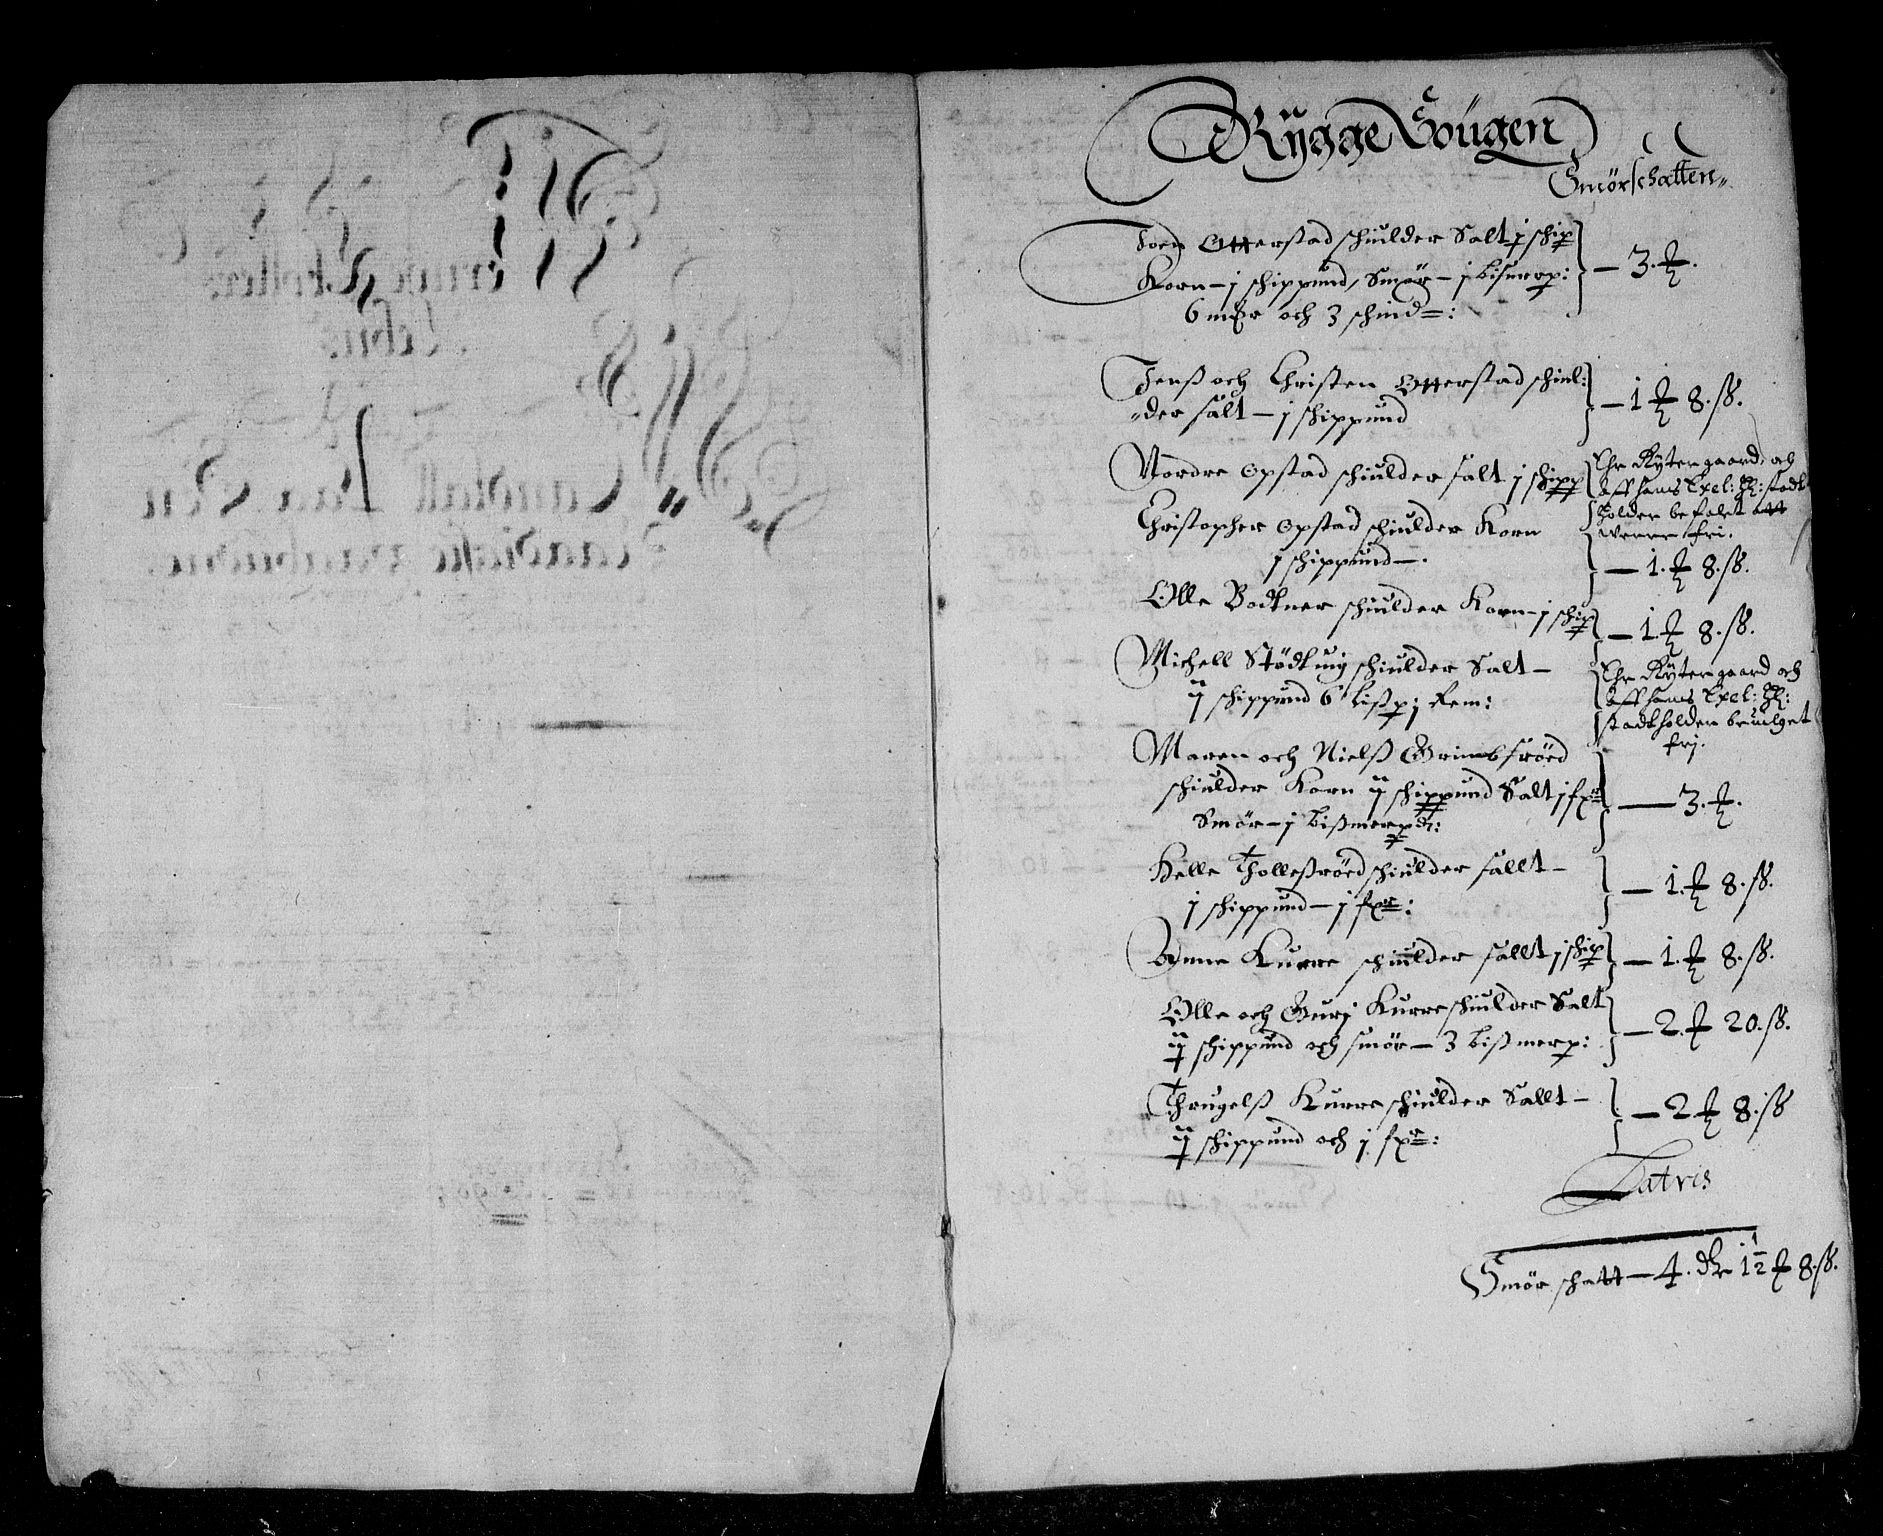 Rygge Sougen
Smörschatten
Joen Otterstad schiulder Salt j schip
Korn – j schippund, Smör – j bismerp: – 3. ℔.
6 mkr och 3 schind=:
Jenß och Christen Otterstad schiul:
"der salt – j schippund – 1 ℔ 8. ß.
Nordre Opstad schiulder salt j schipp
Ehr Rytergaard och
aff hans Excel: H: stadt
holder befalet att
werre fri.
Christopher Opstad schiulder Korn
j schippund –. – 1. ℔ 8. ß.
Olle Bodkner schiulder Korn – j schip – 1. ℔ 8. ß.
Michell Stödkuig schiulder Salt –
ij schippund 6 bißp: j Rem:
Ehr Rytergaard och
aff hans Excel: H:
stadtholder bewilget
frj.
Maren och Nielß Grimbsröed
schiulder Korn ij schippund Salt j fxr – 3. ℔.
Smör – j bißmerpd:
Helle Tholleßröed schiulder sallt –
j schippund – j fxr: – 1. ℔ 8. ß.
Anne Kurre schiulder sallt j schip – 1. ℔ 8. ß.
Olle och Gurj Kurre schiulder Salt
ij schippund och smör – 3 bißmerp: – 2. ℔ 20. ß.
Thrugelß Kurre schiulder Sallt –
ij schippund och j. fxr: – 2. ℔ 8. ß
Latris
Smör schatt – 4. dlr 1 1/2 ℔ 8. ß.